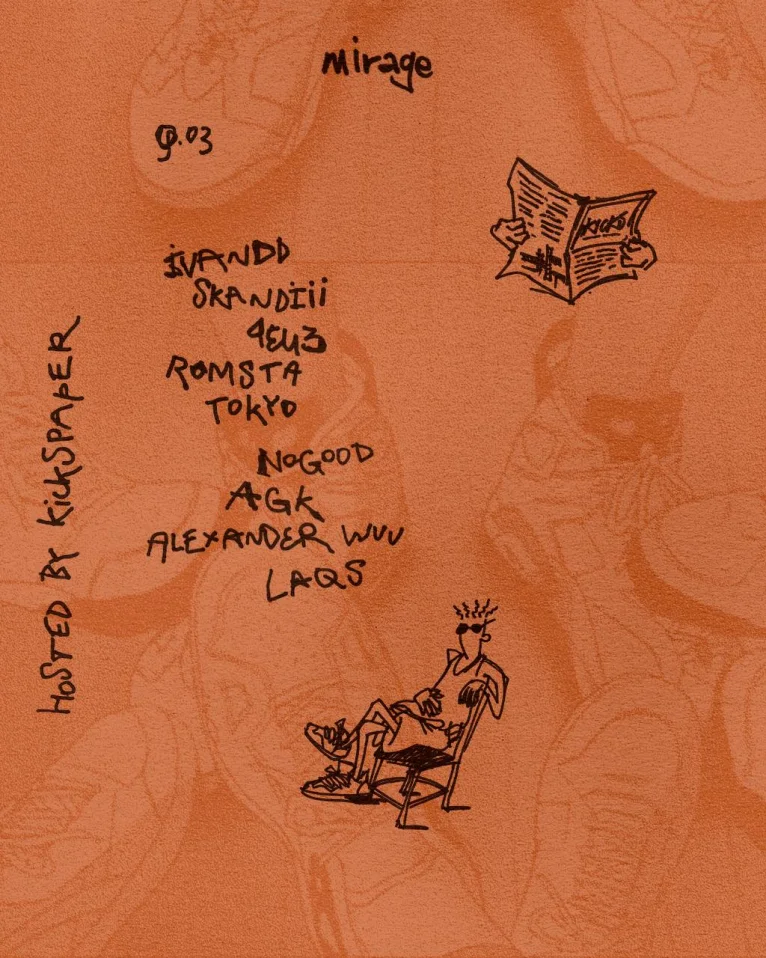 mirage
9.03
KICKS
iVANDD
SKANDIiii
4EU3
ROMSTA
TOKYO
NOGOOD
AGK
ALEXANDER WUU
LAQS
HOSTED BY KICKSPAPER